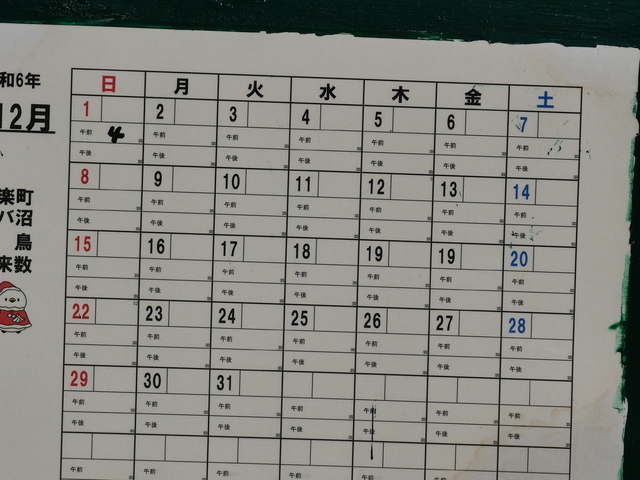 和6年
12月
楽町
バ沼
鳥
来数
日 月 火 水 木 金 土
1 2 3 4 5 6 7
午前 4 午前 午前 午前 午前 午前 午前
午後 午後 午後 午後 午後 午後 午後
8 9 10 11 12 13 14
午前 午前 午前 午前 午前 午前 午前
午後 午後 午後 午後 午後 午後 午後
15 16 17 18 19 19 20
午前 午前 午前 午前 午前 午前 午前
午後 午後 午後 午後 午後 午後 午後
22 23 24 25 26 27 28
午前 午前 午前 午前 午前 午前 午前
午後 午後 午後 午後 午後 午後 午後
29 30 31
午前 午前 午前 午前 午前 午前 午前
午後 午後 午後 午後 午後 午後 午後
午前 午前 午前 午前 午前 午前 午前